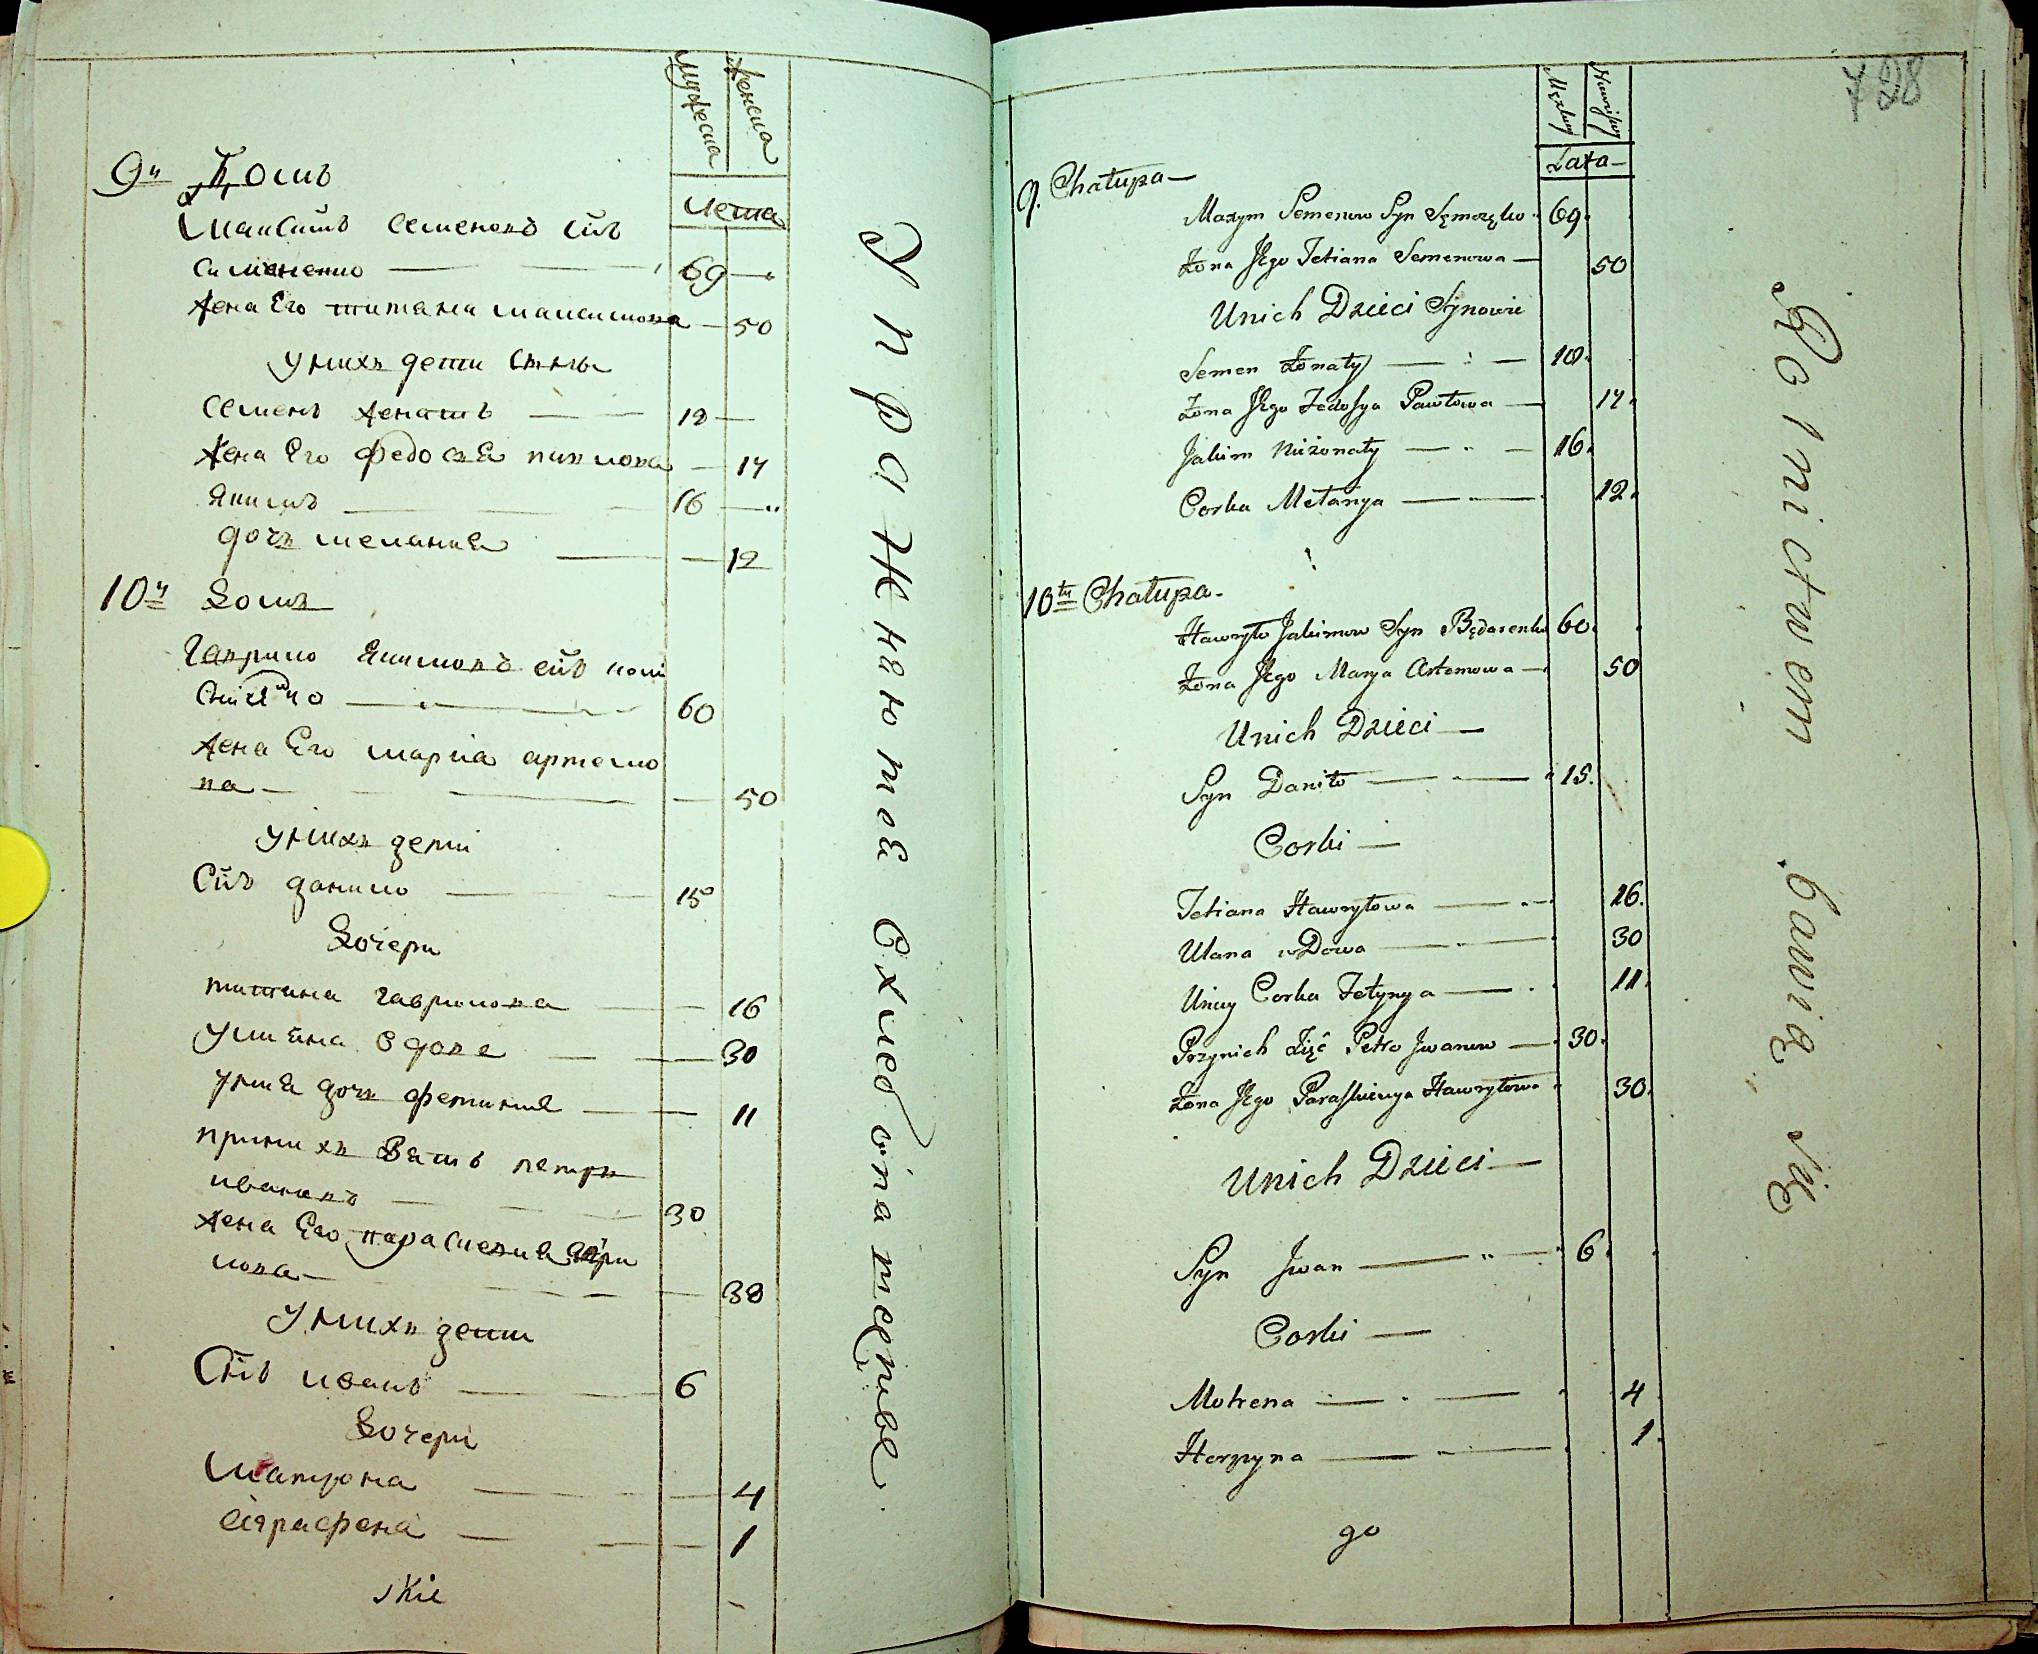 мужеска
женска
лета
9й Домъ
Максимъ Семеновъ сн҃ъ
Симененко 69
жена Его титяна максимова 50
у нихъ дети сыны
семенъ женатъ 18
жена Его федосея павлова 17
якимъ 16
дочь мелания 12
10й Домъ
Гаврило Якимовъ сн҃ъ
60
жена Его мариа артемо
ва 50
у нихъ дети
Сн҃ъ данило 15
Дочери
титяна гаврилова 16
улияна вдова 30
у нея дочь фетиния 11
при нихъ Зять петръ
ивановъ 30
жена Его параскевия гаври
лова 30
у нихъ дети
Сн҃ъ иванъ 6
Дочери
Матрона 4
аграфена 1
skie
Упражняются в хлебопашестве
728
Męzkey
Niewiskey
Lata
9. Chałupa
Maxym Semenow Syn Sęmezęko 69
Żona Jego Tetiana Semenowa 50
Unich Dzieci Synowie
Semen Żonaty 18
Żona Jego Fedosya Pawłowa 17
Jakim Niżonaty 16
Corka Mełanya 12
10ta Chałupa
Hawryło Jakimow Syn Będarenko 60
Żona Jego Marya Artemowa 50
Unich Dzieci
Syn Daniło 15
Corki
Tetiana Hawryłowa 16
Ulana wDowa 30
Uniey Corka Fetynya 11
Przynich Zięć Petro Jwanow 30
Żona Jego Paraskiewya Hawryłowa 30
Unich Dzieci
Syn Jwan 6
Corki
Motrena 4
Horpyna 1
go
Rolnictwem bawią się